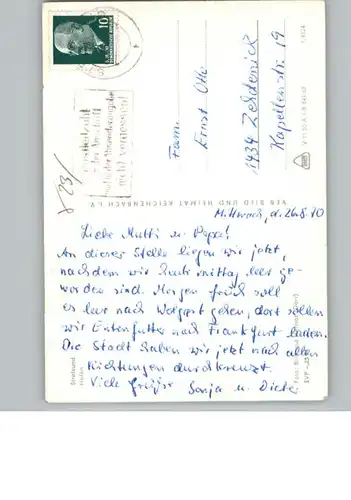 10
Fam.
Ernst Otto
1434 Zehdenick
Kapellenstr. 19
VEB BILD UND HEIMAT REICHENBACH I. V.
Mittwoch, d. 26.8.70
Liebe Mutti u. Papa!
An dieser Stelle liegen wir jetzt,
nachdem wir heute mittag leer ge-
worden sind. Morgen früh soll
es leer nach Wolgast gehen, dort sollen
wir Entenfutter nach Frankfurt laden.
Die Stadt haben wir jetzt nach allen
Richtungen durchkreuzt.
Viele Grüße Sonja u. Dieter
Stralsund
Hafen
nicht vergessen!